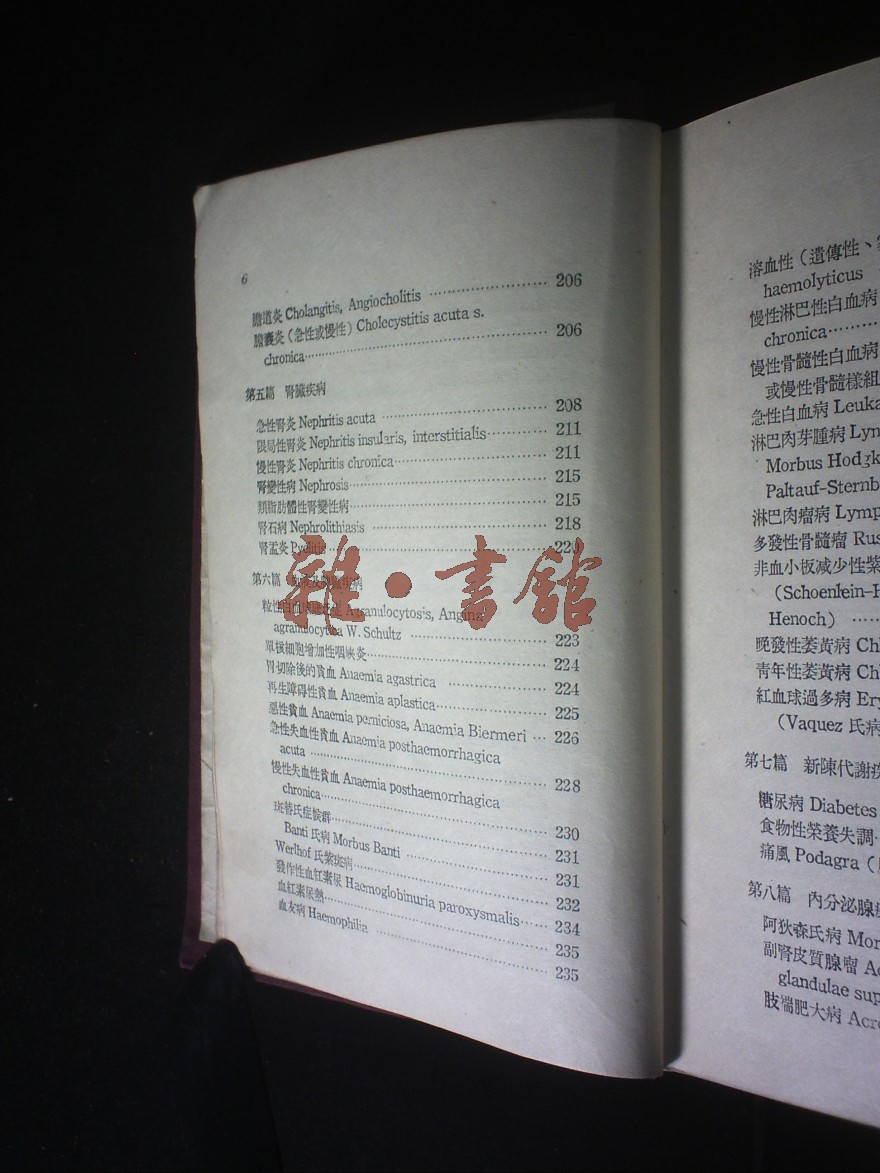 6
膽道炎 Cholangitis, Angiocholitis ………………… 206
膽囊炎(急性或慢性) Cholecystitis acuta s.
chronica………………………………… 206
第五篇 腎臟疾病
急性腎炎 Nephritis acuta ………………………… 208
限局性腎炎 Nephritis insularis, interstitialis………… 211
慢性腎炎 Nephritis chronica……………………… 211
腎變性病 Nephrosis……………………………… 215
類脂肪體性腎變性病……………………………… 215
腎石病 Nephrolithiasis …………………………… 218
腎盂炎 Pyelitis…………………………………… 220
第六篇 疾病
雜·書館
粒性白血球 Agranulocytosis, Angina
agranulocytica W. Schultz ……………………… 223
單核細胞增加性咽峽炎…………………………… 224
胃切除後的貧血 Anaemia agastrica ……………… 224
再生障碍性貧血 Anaemia aplastica………………… 225
惡性貧血 Anaemia perniciosa, Anaemia Biermeri … 226
急性失血性貧血 Anaemia posthaemorrhagica
acuta ……………………………………… 228
慢性失血性貧血 Anaemia posthaemorrhagica
chronica…………………………………… 230
班替氏症候群
Banti 氏病 Morbus Banti ……………………… 231
Werlhof 氏紫斑病………………………………… 231
發作性血紅素尿 Haemoglobinuria paroxysmalis…… 232
血紅素尿熱………………………………………… 234
血友病 Haemophilia ……………………………… 235
235
溶血性(遺傳性、
haemolyticus
慢性淋巴性白血病
chronica…………
慢性骨髓性白血病
或慢性骨髓樣組
急性白血病 Leuka
淋巴肉芽腫病 Lyn
Morbus Hodgk
Paltauf-Sternb
淋巴肉瘤病 Lymp
多發性骨髓瘤 Rus
非血小板減少性紫
(Schoenlein-H
Henoch) ……
晚發性萎黃病 Ch
青年性萎黃病 Ch
紅血球過多病 Ery
(Vaquez 氏病
第七篇 新陳代謝疾
糖尿病 Diabetes
食物性榮養失調
痛風 Podagra (
第八篇 內分泌腺
阿狄森氏病 Mor
副腎皮質腺瘤 Ad
glandulae sup
肢端肥大病 Acro